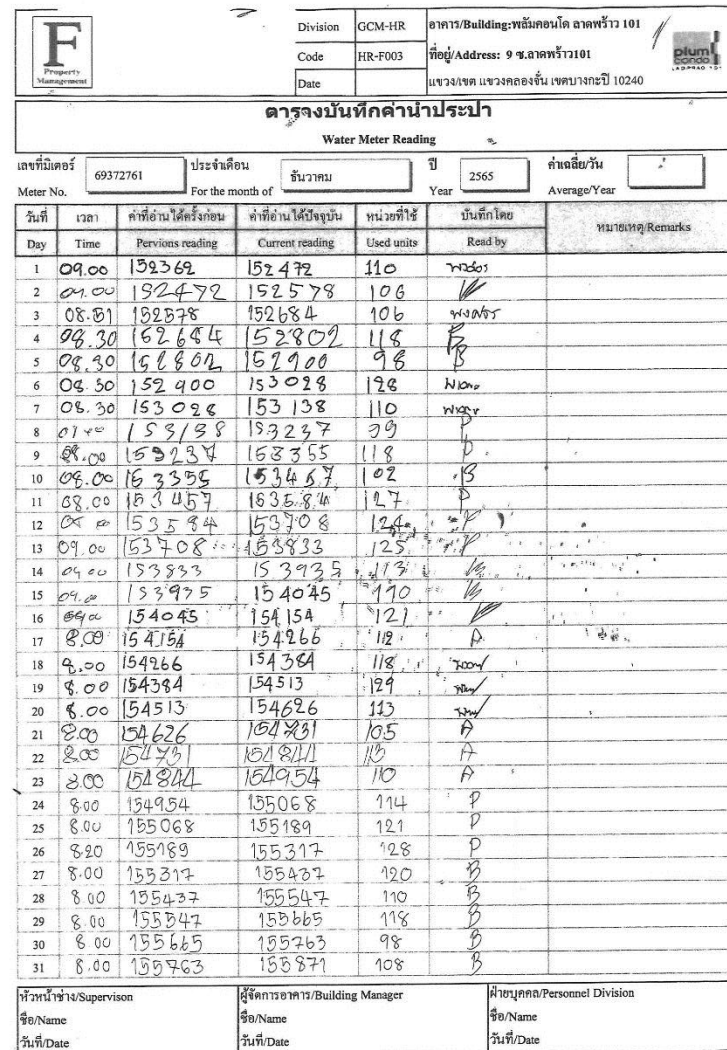 F
Property
Management
Division GCM-HR
Code HR-F003
Date
อาคาร/Building:พลัมคอนโด ลาดพร้าว 101
ที่อยู่/Address: 9 ซ.ลาดพร้าว101
แขวง/เขต แขวงคลองจั่น เขตบางกะปิ 10240
plum
condo
LADPRAO 101
ตารางบันทึกค่าน้ำประปา
Water Meter Reading
เลขที่มิเตอร์ 69372761 ประจำเดือน ธันวาคม ปี 2565 ค่าเฉลี่ย/วัน
Meter No. For the month of Year Average/Year
วันที่ เวลา ค่าที่อ่านได้ครั้งก่อน ค่าที่อ่านได้ปัจจุบัน หน่วยที่ใช้ บันทึกโดย หมายเหตุ/Remarks
Day Time Pervions reading Current reading Used units Read by
1 09.00 152362 152472 110
2 09.00 152472 152578 106
3 08.51 152578 152684 106
4 08.30 152684 152802 118 B
5 08.30 152802 152900 98 B
6 08.30 152900 153028 128
7 08.30 153028 153138 110
8 153138 153237 99 P
9 08.00 153237 153355 118 P
10 08.00 153355 153457 102 B
11 08.00 153457 153584 127 P
12 153584 153708 124 P
13 09.00 153708 153833 125 P
14 09.00 153833 153935 113
15 09.00 153935 154045 110
16 154045 154154 121
17 8.00 154154 154266 112 A
18 8.00 154266 154384 118
19 8.00 154384 154513 129
20 8.00 154513 154626 113
21 8.00 154626 154731 105 A
22 8.00 154731 154844 113 A
23 8.00 154844 154954 110 A
24 8.00 154954 155068 114 P
25 8.00 155068 155189 121 P
26 8.20 155189 155317 128 P
27 8.00 155317 155437 120 B
28 8.00 155437 155547 110 B
29 8.00 155547 155665 118 B
30 8.00 155665 155763 98 B
31 8.00 155763 155871 108 B
หัวหน้าช่าง/Supervison ผู้จัดการอาคาร/Building Manager ฝ่ายบุคคล/Personnel Division
ชื่อ/Name ชื่อ/Name ชื่อ/Name
วันที่/Date วันที่/Date วันที่/Date